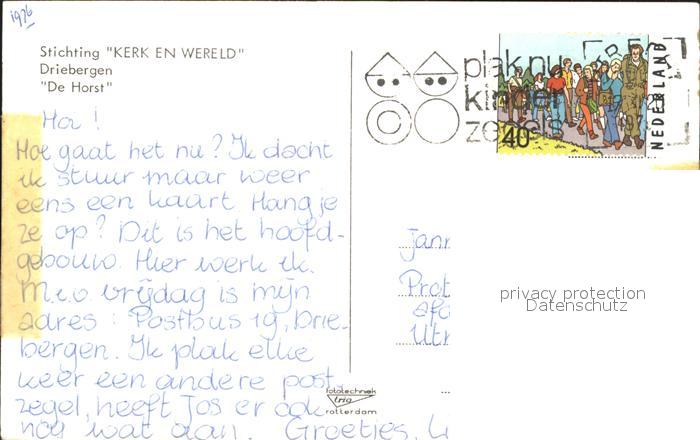 1976
Stichting "KERK EN WERELD"
Driebergen
"De Horst"
Hoi!
Hoe gaat het nu? Ik dacht
ik stuur maar weer
eens een kaart. Hang je
ze op? Dit is het hoofd-
gebouw. Hier werk ik.
M.i.v. vrijdag is mijn
adres: Postbus 19, Drie-
bergen. Ik plak elke
keer een andere post-
zegel, heeft Jos er ook
nog wat aan. Groetjes,
plak nu
kinder
zegels
40
NEDERLAND
Jann
Prot
Utr
privacy protection
Datenschutz
fototechniek
trio
rotterdam